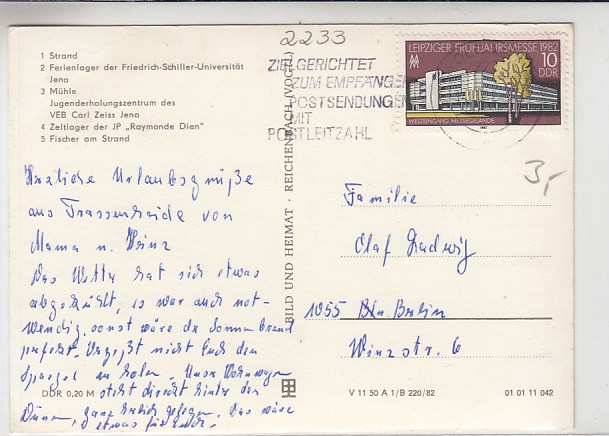 2233
1 Strand
2 Ferienlager der Friedrich-Schiller-Universität
Jena
3 Mühle
Jugenderholungszentrum des
VEB Carl Zeiss Jena
4 Zeltlager der JP „Raymonde Dien"
5 Fischer am Strand
ZIELGERICHTET
ZUM EMPFÄNGER
POSTSENDUNGEN
MIT
POSTLEITZAHL
LEIPZIGER FRÜHJAHRSMESSE 1982
10
DDR
WESTEINGANG MESSEGELÄNDE
1982
3,-
Herzliche Urlaubsgrüße
aus Trassenheide von
Mama u. Heinz
Das Wetter hat sich etwas
abgekühlt, es war auch not-
wendig, sonst wäre der Sonnenbrand
perfekt. Vergeßt nicht Euch den
Spiegel zu holen. Unser Wohnwagen
steht direkt hinter den
Dünen, ganz herrlich gelegen. Das wäre
etwas für Euch.
BILD UND HEIMAT · REICHENBACH (VOGTL)
Familie
Olaf Ludwig
1055 Bln. Berlin
Winsstr. 6
DDR 0,20 M
V 11 50 A 1/B 220/82
01 01 11 042